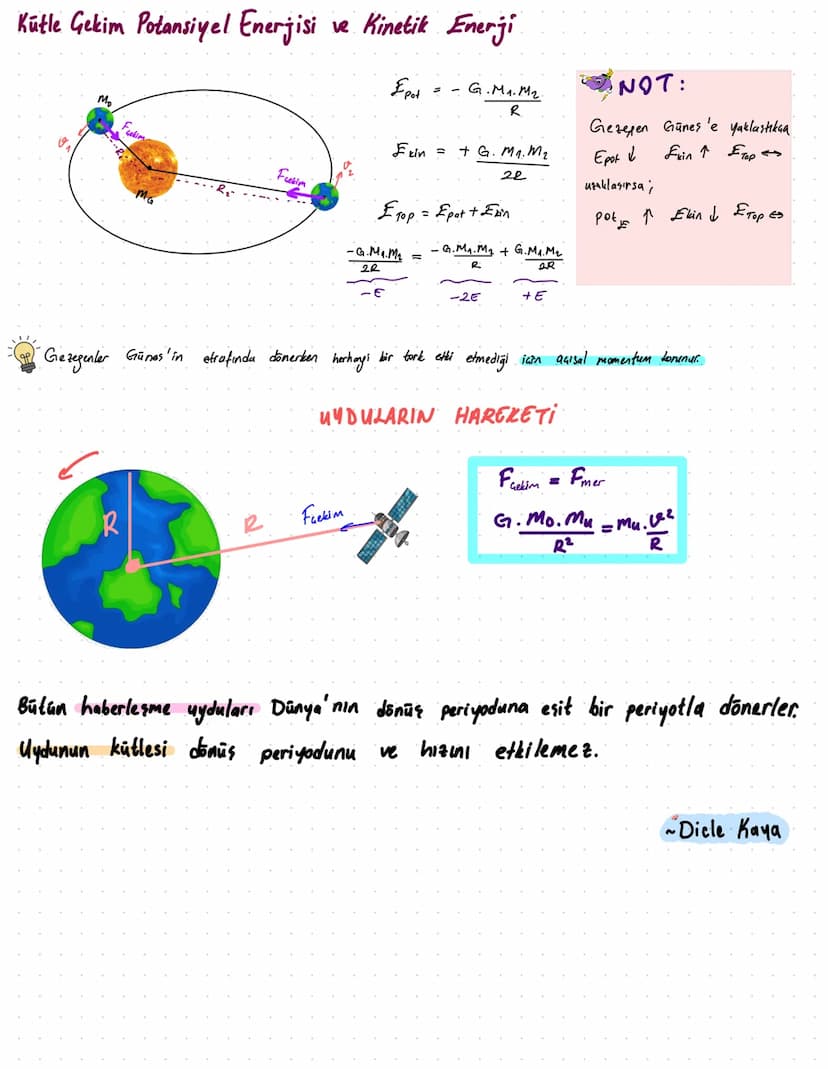 Kütle Çekim Potansiyel Enerjisi ve Kinetik Enerji
M_D
F_çekim
ϑ_1
R_1
M_G
R_2
F_çekim
ϑ_2
E_pot = - G.M_1.M_2 / R
E_kin = + G.M_1.M_2 / 2R
E_Top = E_pot + E_kin
-G.M_1.M_2 / 2R = -G.M_1.M_2 / R + G.M_1.M_2 / 2R
-E -2E +E
NOT:
Gezegen Güneş'e yaklaştıkça
Epot ↓ Ekin ↑ E_Top ↔
uzaklaşırsa;
pot_E ↑ Ekin ↓ E_Top ↔
Gezegenler Güneş'in etrafında dönerken herhagi bir tork etki etmediği için açısal momentum korunur.
UYDULARIN HAREKETİ
R
R
F_çekim
F_çekim = F_mer
G.M_D.M_u / R² = M_u.ϑ² / R
Bütün haberleşme uyduları Dünya'nın dönüş periyoduna eşit bir periyotla dönerler.
Uydunun kütlesi dönüş periyodunu ve hızını etkilemez.
~Dicle Kaya